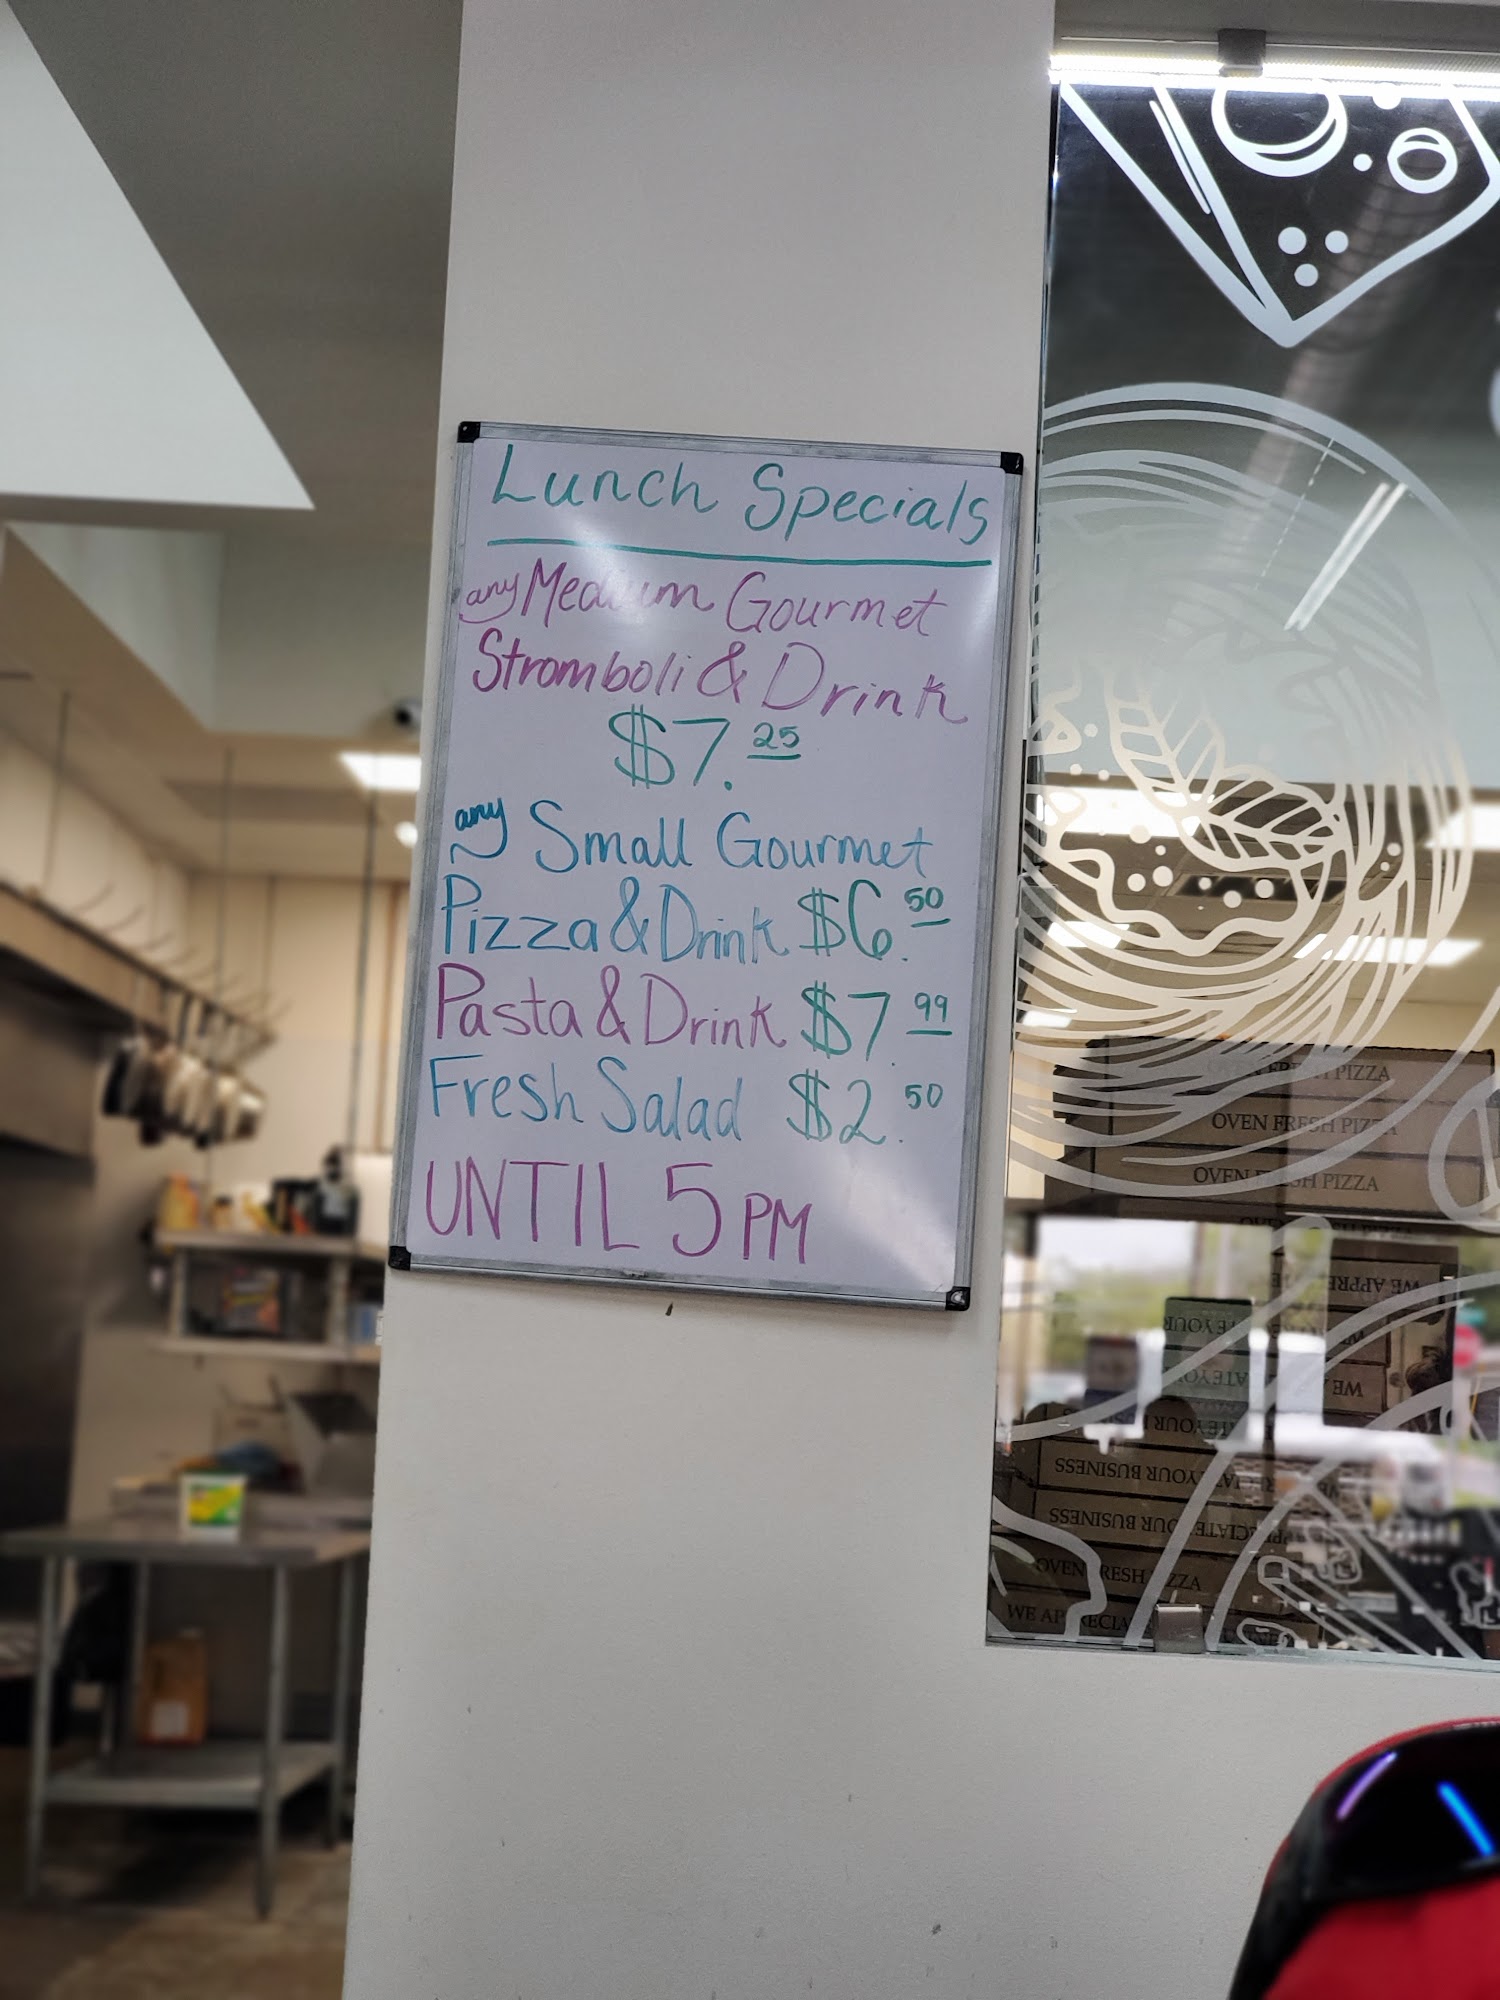 Lunch Specials
any Medium Gourmet
Stromboli & Drink
$7.25
any Small Gourmet
Pizza & Drink $6.50
Pasta & Drink $7.99
Fresh Salad $2.50
UNTIL 5 PM
OVEN FRESH PIZZA
OVEN FRESH PIZZA
OVEN FRESH PIZZA
WE APPRE
YOUR BUSINESS
YOUR BUSINESS
OVEN FRESH PIZZA